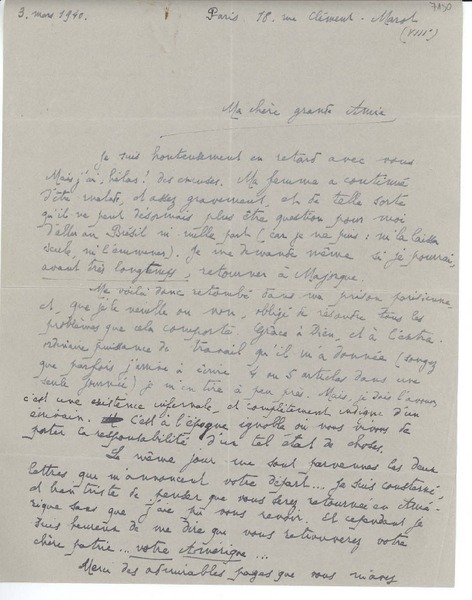 3. mars 1940.
Paris 18, rue Clément-Marot
(VIIIe)
Ma chère grande Amie
Je suis honteusement en retard avec vous
Mais j'ai, hélas! des excuses. Ma femme a continué
d'être malade, et assez gravement, et de telle sorte
qu'il ne peut désormais plus être question pour moi
d'aller au Brésil ni nulle part (car je ne puis: ni la laisser
seule, ni l'emmener). Je me demande même si je pourrai,
avant très longtemps, retourner à Majorque.
Me voilà donc retombé dans ma prison parisienne
et, que je le veuille ou non, obligé de résoudre tous les
problèmes que cela comporte. Grâce à Dieu, et à l'extra-
ordinaire puissance de travail qu'il m'a donnée (songez
que parfois j'arrive à écrire 4 ou 5 articles dans une
seule journée) je m'en tire à peu près. Mais, je dois l'avouer,
c'est une existence infernale, et complètement indigne d'un
écrivain. C'est à l'époque ignoble où nous vivons de
porter la responsabilité d'un tel état de choses.
Le même jour me sont parvenues les deux
lettres que m'annoncent votre départ... Je suis consterné,
et bien triste de penser que vous serez retournée en Amé-
rique sans que j'aie pu vous revoir. Et cependant je
suis heureux de me dire que vous retrouverez votre
chère patrie... votre Amérique...
Merci des admirables pages que vous m'avez